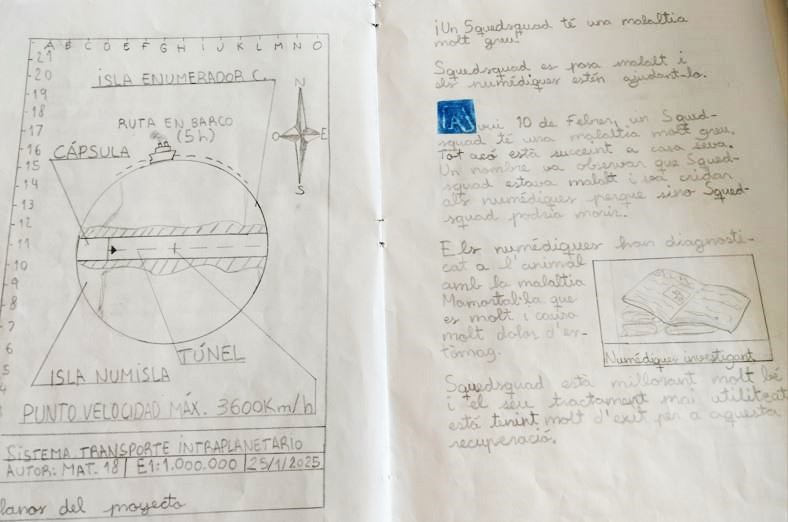 A B C D E F G H I J K L M N O
21
20
19
18
17
16
15
14
13
12
11
10
9
8
7
6
5
ISLA ENUMERADOR C.
N
O E
S
RUTA EN BARCO
(5h)
CÁPSULA
TÚNEL
ISLA NUMISLA
PUNTO VELOCIDAD MÁX. 3600Km/h
SISTEMA TRANSPORTE INTRAPLANETARIO
AUTOR: MAT. 18 E1:1.000.000 25/1/2025
lanos del proyecto
¡Un Squedsquad té una malaltia
molt greu!
Squedsquad es posa malalt i
els numédiques estén ajudant-lo.
Avui 10 de Febrer, un Squed-
squad té una malaltia molt greu.
Tot açó está succeint a casa seva.
Un nombre va observar que Squed-
squad estava malalt i va cridar
als numédiques perque sino Squed-
squad podria morir.
Els numédiques han diagnosti-
cat a l'animal
amb la malaltia
Mamortal·la que
es molt i causa
molt dolor d'es-
tómag.
Numédiques investigant
Squedsquad está millorant molt bé
i el seu tractament mai utilitzat
está tenint molt d'exit per a aquesta
recuperació.